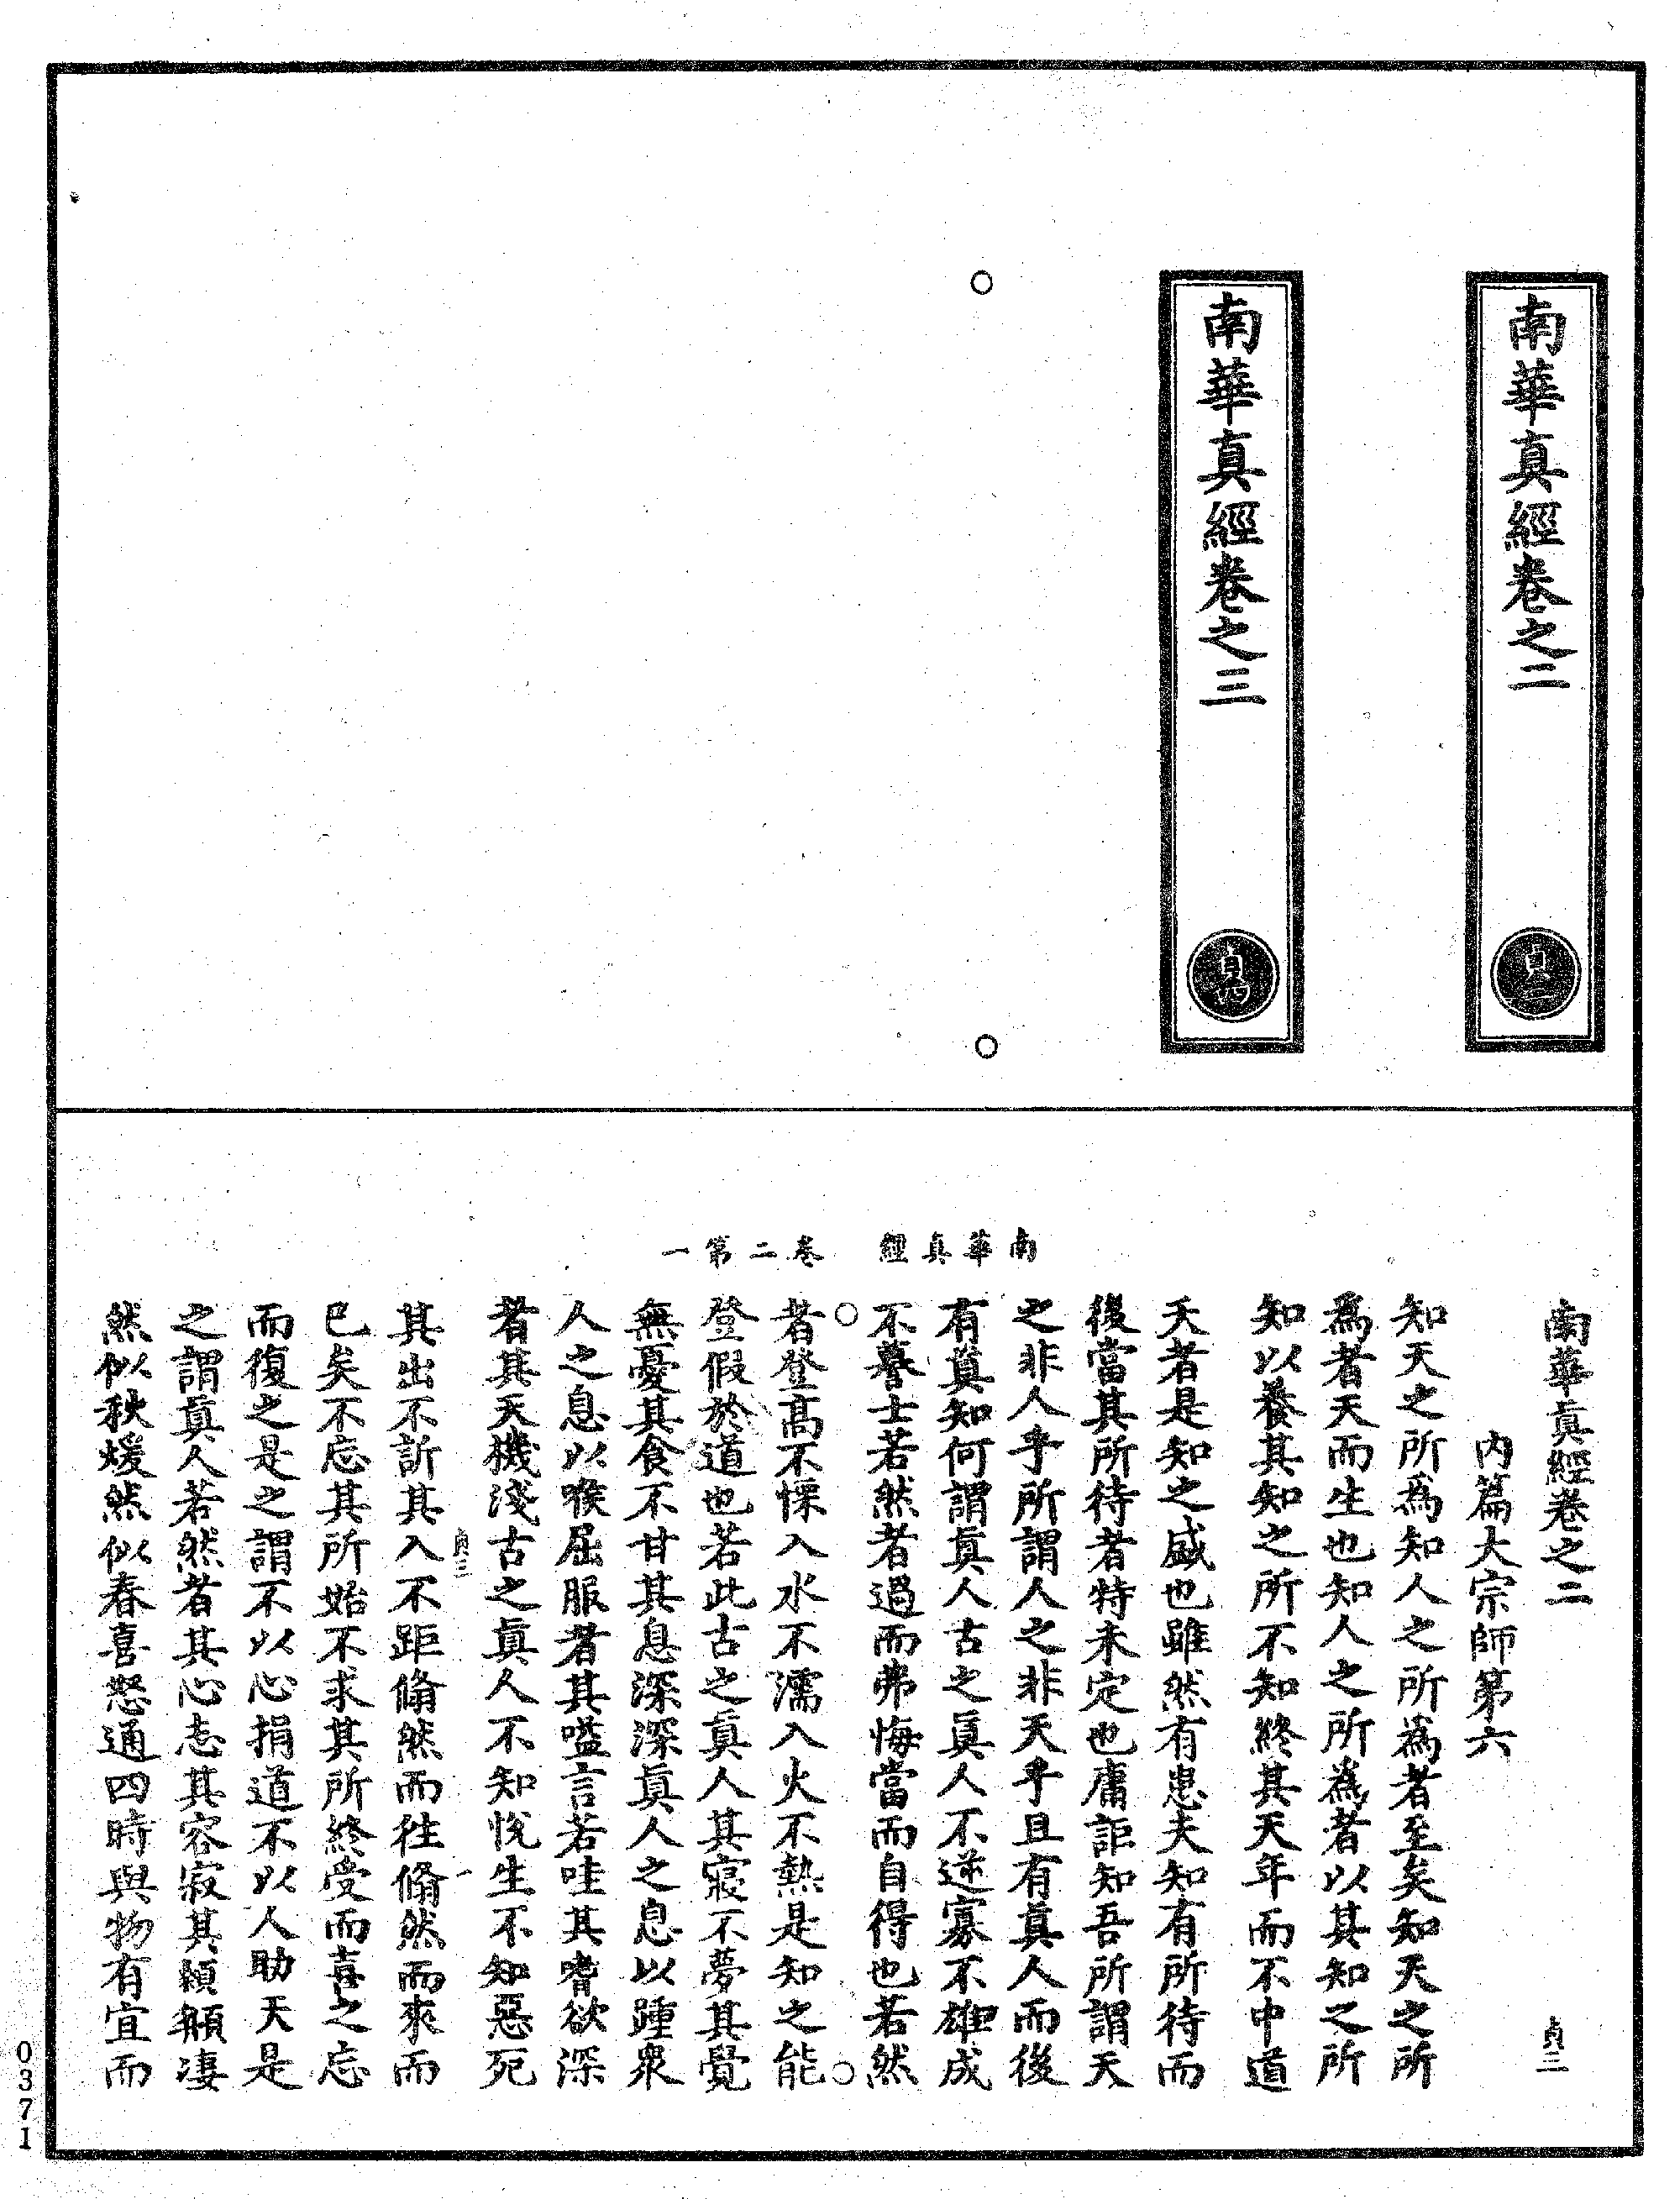 南華真經卷之二
貞三
南華真經卷之三
貞四
南華真經　卷二第一
南華眞經卷之二
貞三
內篇大宗師第六
知天之所為知人之所為者至矣知天之所
爲者天而生也知人之所爲者以其知之所
知以養其知之所不知終其天年而不中道
夭者是知之盛也雖然有患夫知有所待而
後當其所待者特未定也庸詎知吾所謂天
之非人乎所謂人之非天乎且有眞人而後
有眞知何謂眞人古之眞人不逆寡不雄成
不謩士若然者過而弗悔當而自得也若然
者登高不慄入水不濡入火不熱是知之能
登假於道也若此古之眞人其寢不夢其覺
無憂其食不甘其息深深眞人之息以踵衆
人之息以喉屈服者其嗌言若哇其嗜欲深
者其天機淺古之眞人不知悅生不知惡死
貞三
其出不訢其入不距翛然而往翛然而來而
已矣不忘其所始不求其所終受而喜之忘
而復之是之謂不以心捐道不以人助天是
之謂眞人若然者其心志其容寂其顙頯淒
然似秋煖然似春喜怒通四時與物有宜而
0371